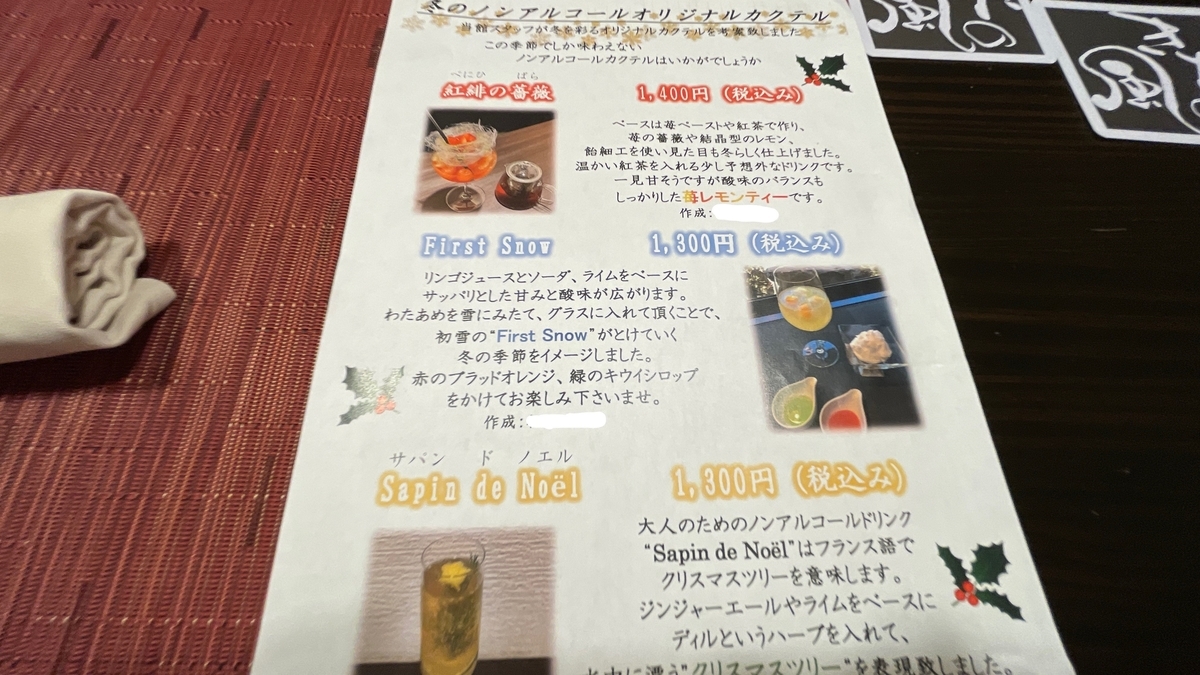 冬のノンアルコールオリジナルカクテル
当館スタッフが冬を彩るオリジナルカクテルを考案致しました
この季節でしか味わえない
ノンアルコールカクテルはいかがでしょうか
べにひ ばら
紅緋の薔薇 1,400円（税込み）
ベースは苺ペーストや紅茶で作り、
苺の薔薇や結晶型のレモン、
飴細工を使い見た目も冬らしく仕上げました。
温かい紅茶を入れる少し予想外なドリンクです。
一見甘そうですが酸味のバランスも
しっかりした苺レモンティーです。
作成：
First Snow 1,300円（税込み）
リンゴジュースとソーダ、ライムをベースに
サッパリとした甘みと酸味が広がります。
わたあめを雪にみたて、グラスに入れて頂くことで、
初雪の“First Snow”がとけていく
冬の季節をイメージしました。
赤のブラッドオレンジ、緑のキウイシロップ
をかけてお楽しみ下さいませ。
作成：
サパン ド ノエル
Sapin de Noël 1,300円（税込み）
大人のためのノンアルコールドリンク
“Sapin de Noël”はフランス語で
クリスマスツリーを意味します。
ジンジャーエールやライムをベースに
ディルというハーブを入れて、
水中に漂う“クリスマスツリー”を表現致しました。